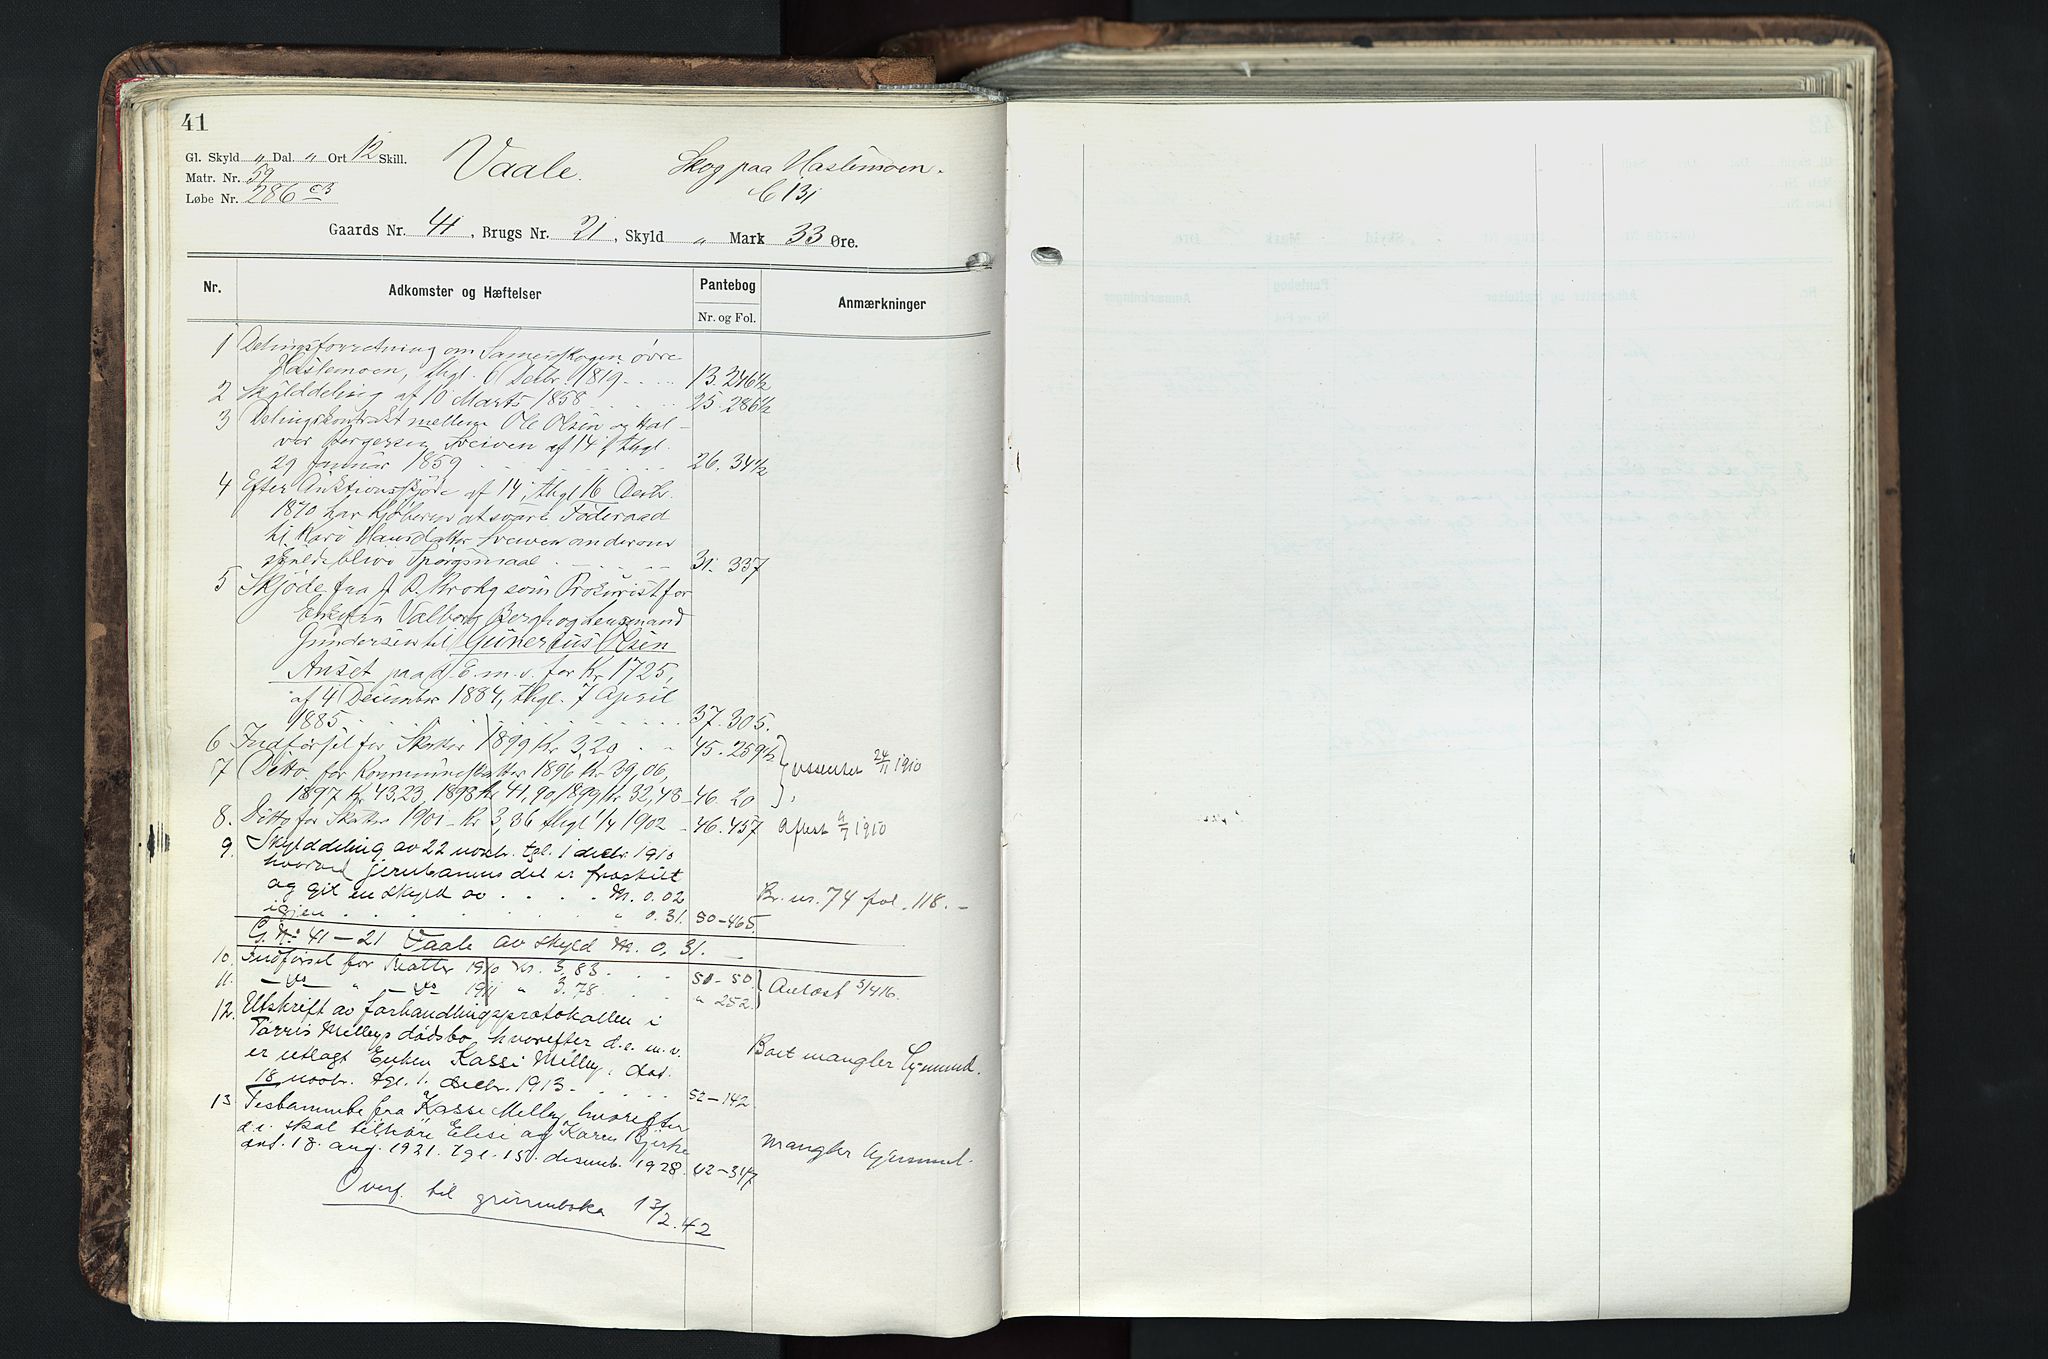 41
Gl. Skyld " Dal. " Ort 12 Skill.
Matr. Nr. 59
Løbe Nr. 286 c3
Vaale. Skog paa Haslemoen.
Gaards Nr. 41, Brugs Nr. 21, Skyld " Mark 33 Øre.
Nr. Adkomster og Hæftelser Pantebog Anmærkninger
Nr. og Fol.
1 Delingsforretning om Sameieskogen øvre
Haslemoen, thgl. 6 Decbr. 1819 13. 246½
2 Skylddeling af 10 Marts 1858 25. 286½
3 Delingskontrakt mellem Ole Olsen og Hal-
vor Børgersen Sveiven af 14, thgl.
29 Januar 1859 26. 34½
4 Efter Auktionsskjøde af 14, thgl 16 Decbr.
1870 har Kjøberen at svare Føderaad
til Kari Hansdatter Sveiven anderom
skulde blive Spørgsmaal 31. 337
5 Skjøde fra J. D. Krohg som Prokurist for
Enkefru Valborg Bergh og Lensmand
Gundersen til Gunerius Olsen
Anset paa d. E. m. v. for Kr. 1725,
af 4 December 1884, thgl. 7 April
1885 37. 305.
6 Indførsel for Skatter 1899 Kr 3,20 45. 259½
7 Ditto for Kommuneskatter 1896 Kr 39,06,
24/11 1910
1897 Kr 43,23, 1898 Kr 41,90, 1899 Kr 32,48 46. 20
8. Ditto for Skatter 1901 - Kr 3,36 thgl 1/4 1902 - 46. 457 Aflæst 9/7 1910
9. Skylddeling av 22 novbr. tgl. 1 decbr. 1910
hvorved jernbanens del er fraskilt
og git en skyld av M. 0.02 Br. nr. 74 fol. 118. -
igjen " 0.31. 50-465.
G. No 41 - 21 Vaale av skyld M. 0,31.
10. Indførsel for skatter 1910 kr. 3,83 50-50
11. - " - 1911 " 3.78 " 252. Avlæst 5/4 16.
12. Utskrift av forhandlingsprotokollen i
Tarris Mellbys dødsbo, hvorefter d. e. m. v.
er utlagt Enken Kassi Mellby, dat.
18 novbr. tgl. 1. decbr. 1913. 52-142 Boet mangler hjemmel.
13. Testamente fra Kassi Mellby hvorefter
d. e. skal tilhøre Elise og Karen Bjerke
dat. 18. aug. 1921. tgl. 15. desemb. 1928. 42-347 mangler hjemmel.
Overf. til grunnboka 13/2.42